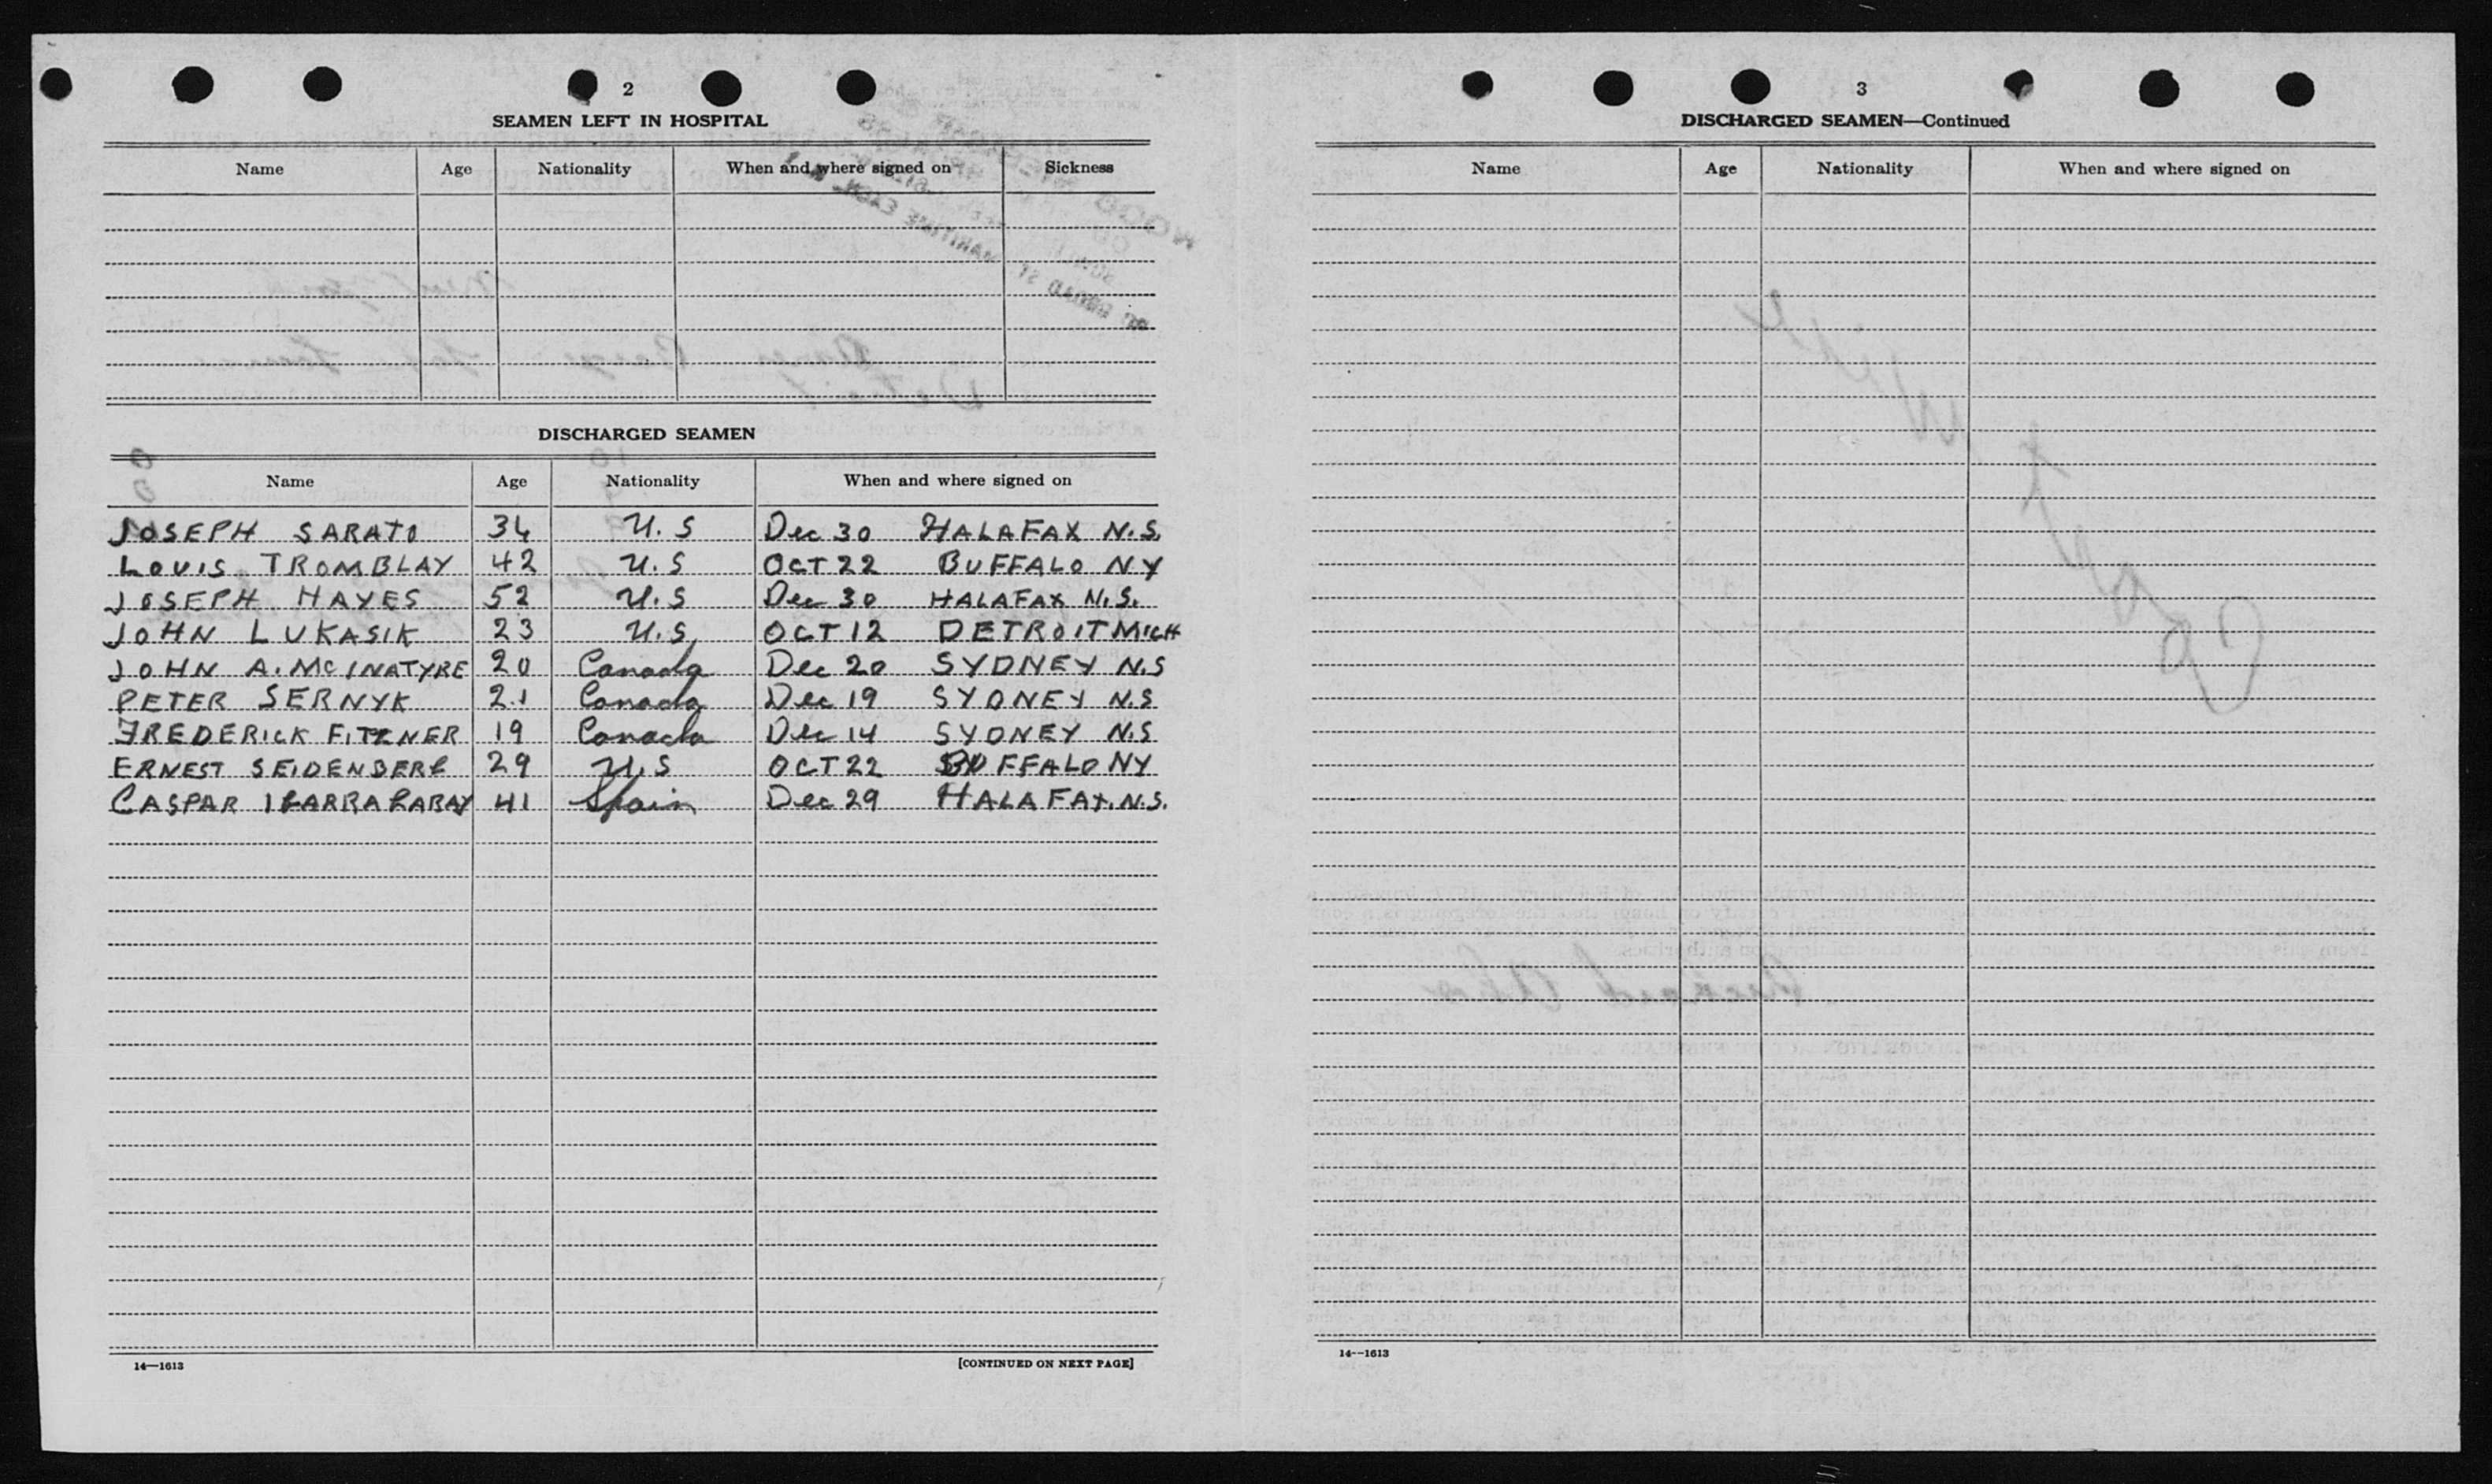 2
SEAMEN LEFT IN HOSPITAL
Name Age Nationality When and where signed on Sickness
DISCHARGED SEAMEN
Name Age Nationality When and where signed on
JOSEPH SARATO 34 U.S Dec 30 HALAFAX N.S.
LOUIS TROMBLAY 42 U.S OCT 22 BUFFALO NY
JOSEPH HAYES 52 U.S Dec 30 HALAFAX N.S.
JOHN LUKASIK 23 U.S. OCT 12 DETROIT MICH
JOHN A. MCINATYRE 20 Canada Dec 20 SYDNEY N.S
PETER SERNYK 21 Canada Dec 19 SYDNEY N.S
FREDERICK FITZNER 19 Canada Dec 14 SYDNEY N.S
ERNEST SEIDENBERG 29 U.S OCT 22 BUFFALO NY
CASPAR 41 Spain Dec 29 HALAFAX. N.S.
14—1613
[CONTINUED ON NEXT PAGE]
3
DISCHARGED SEAMEN—Continued
Name Age Nationality When and where signed on
14--1613